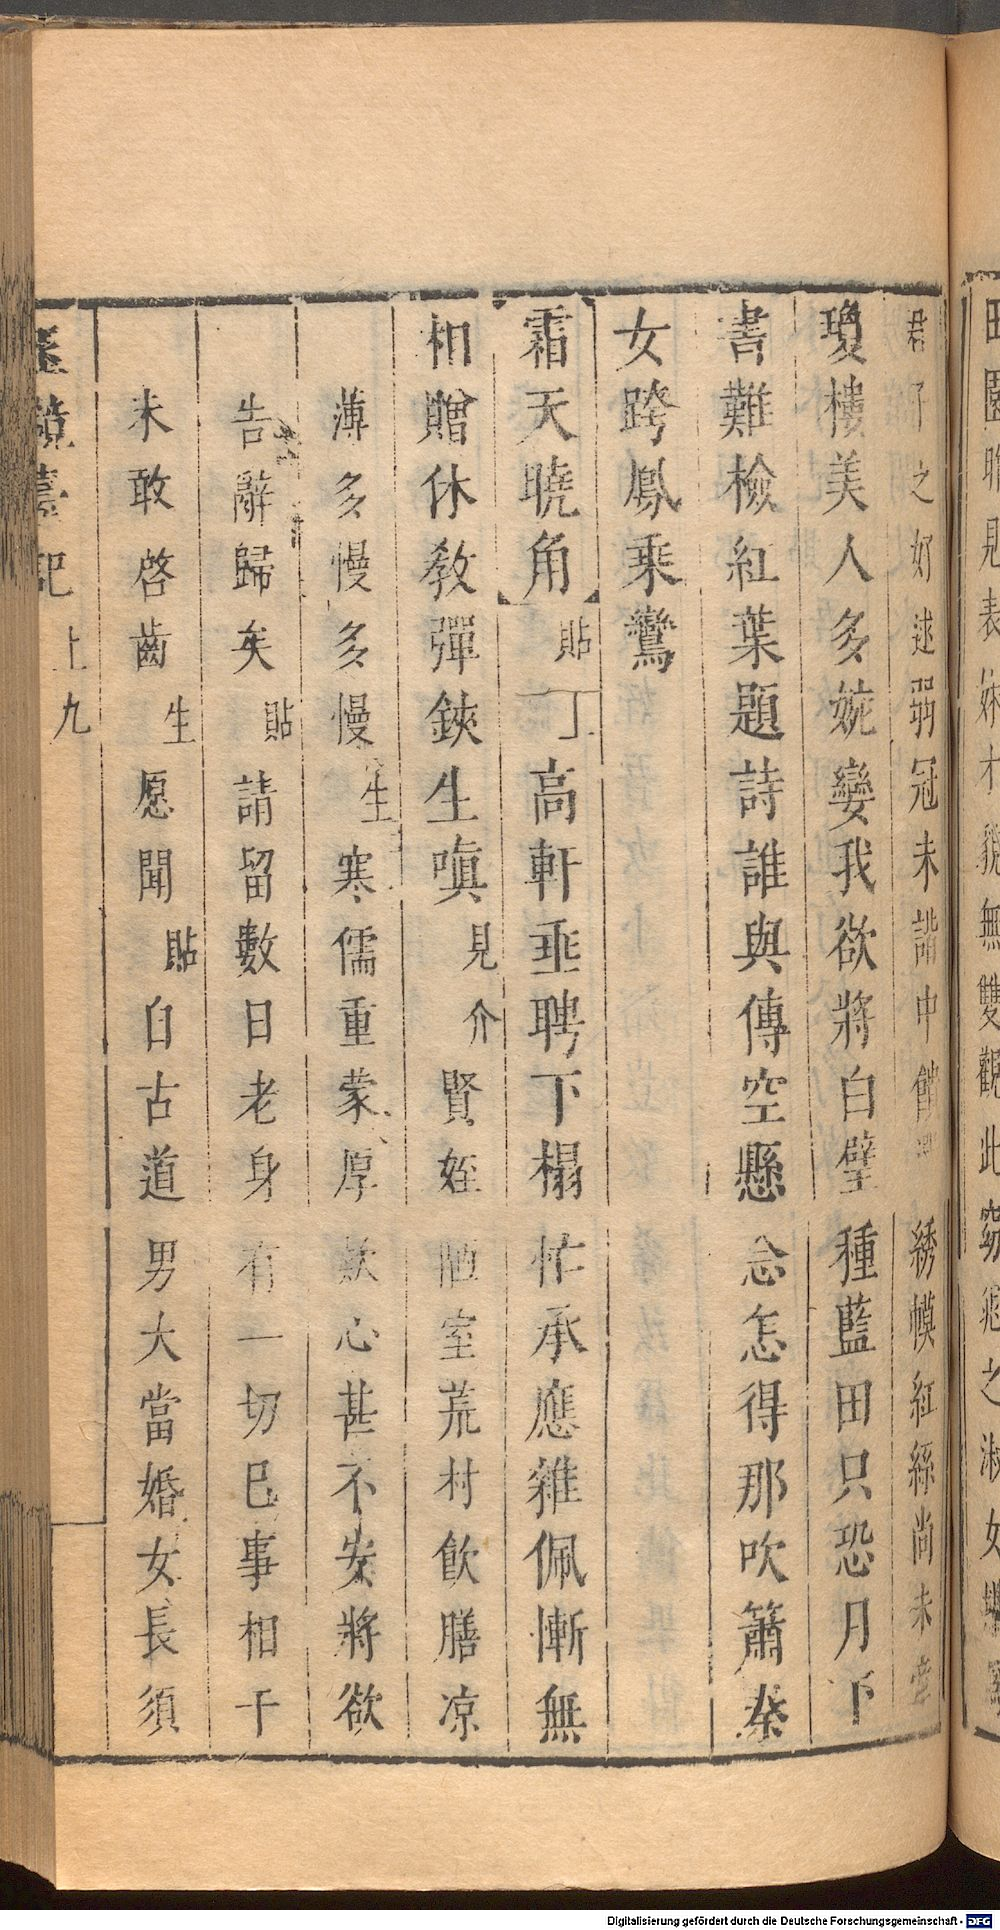 田園聊見表妹才貌無雙觀此窈窕之淑女
君子之好逑弱冠未諧中饋 綉幙紅絲尚未
瓊樓美人多婉孌我欲將白璧種藍田只恐月下
書難檢紅葉題詩誰與傳空懸念怎得那吹簫秦
女跨鳳乘鸞
霜天曉角貼丁高軒埀聘下榻忙承應雜佩慚無
相贈休教彈鋏生嗔見介賢姪陋室荒村飲膳凉
薄多慢多慢生寒儒重蒙厚款心甚不安將欲
告辭歸矣貼請留數日老身有一切巳事相干
未敢啓齒生愿聞貼自古道男大當婚女長須
玉鏡臺記 上 九
Digitalisierung gefördert durch die Deutsche Forschungsgemeinschaft - DFG